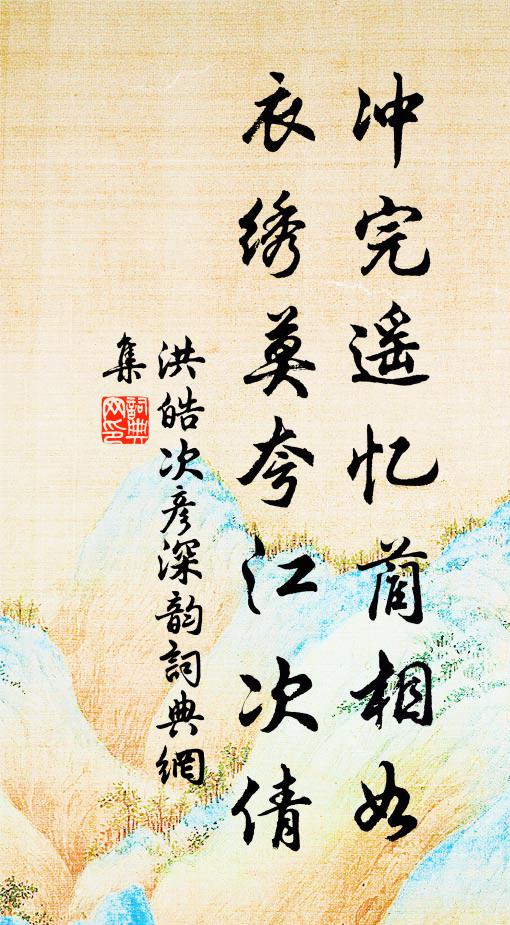 冲完遥忆蔺相如
衣绣莫夸江次倩
洪皓次彦深韵詞典網
集
詞典
网印